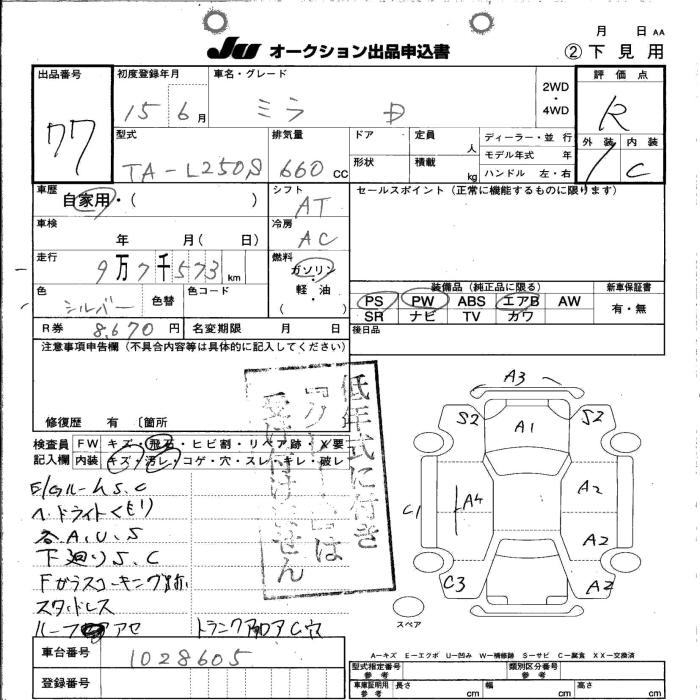 月 日 AA
Ju オークション出品申込書
② 下見用
出品番号
77
初度登録年月
15 6月
車名・グレード
ミラ D
2WD・4WD
評価点
R
外装 内装
C
型式
TA-L250S
排気量
660 cc
ドア
定員 人
形状
積載 kg
ディーラー・並行
モデル年式 年
ハンドル 左・右
車歴
自家用・( )
シフト
AT
セールスポイント(正常に機能するものに限ります)
車検
年 月( 日)
冷房
AC
走行
9万7千573km
燃料
ガソリン・軽油
( )
色
シルバー
色替
色コード
装備品(純正品に限る)
新車保証書
PS PW ABS エアB AW
SR ナビ TV カワ
有・無
R券 8,670円
名変期限 月 日
後日品
注意事項申告欄(不具合内容等は具体的に記入してください)
修復歴 有 〔箇所
低年式に付き
『クレーム』は
受け付けません
検査員記入欄
FW キズ・飛石・ヒビ割・リペア跡・X要
内装 キズ・汚レ・コゲ・穴・スレ・キレ・破レ
E/GルームS.C
ヘッドライトくもり
各A.U.S
下廻りS.C
Fガラスコーキング
スタッドレス
ルーフ アセ
トランクフロアC穴
A3
S2
A1
S2
C1
A4
A2
A2
C3
A2
スペア
A-キズ E-エクボ U-凹み W-補修跡 S-サビ C-腐食 XX-交換済
車台番号
1028605
登録番号
型式指定番号 参考
類別区分番号 参考
車庫証明用 参考
長さ cm
幅 cm
高さ cm